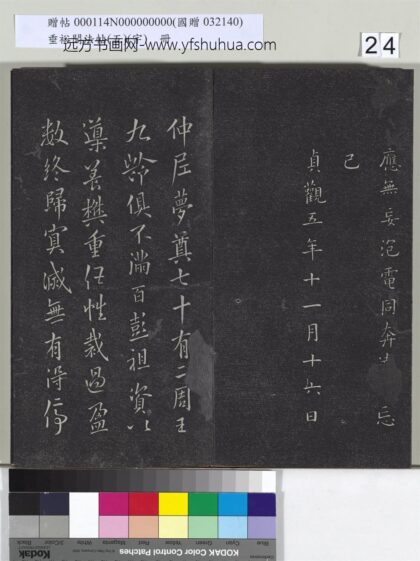 贈帖 000114N000000000(國贈 032140)
远方书画网-www.yfshuhua.com
24
應無妄泡電同奔 忘
己
貞觀五年十一月十六日
仲尼夢奠七十有二周王
九齡俱不滿百彭祖資以
導養樊重任性裁過盈
數終歸冥滅無有得停
Blue
Cyan
Green
Yellow
Red
Magenta
White
3/Color
Black
KODAK Color Control Patches